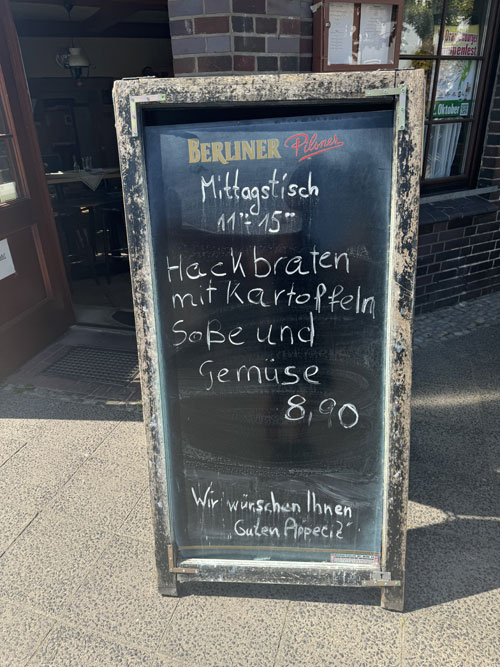 BERLINER Pilsner
Mittagstisch
11°°-15°°
Hackbraten
mit Kartoffeln
Soße und
Gemüse
8,90
Wir wünschen Ihnen
Guten Appetit
Oktober